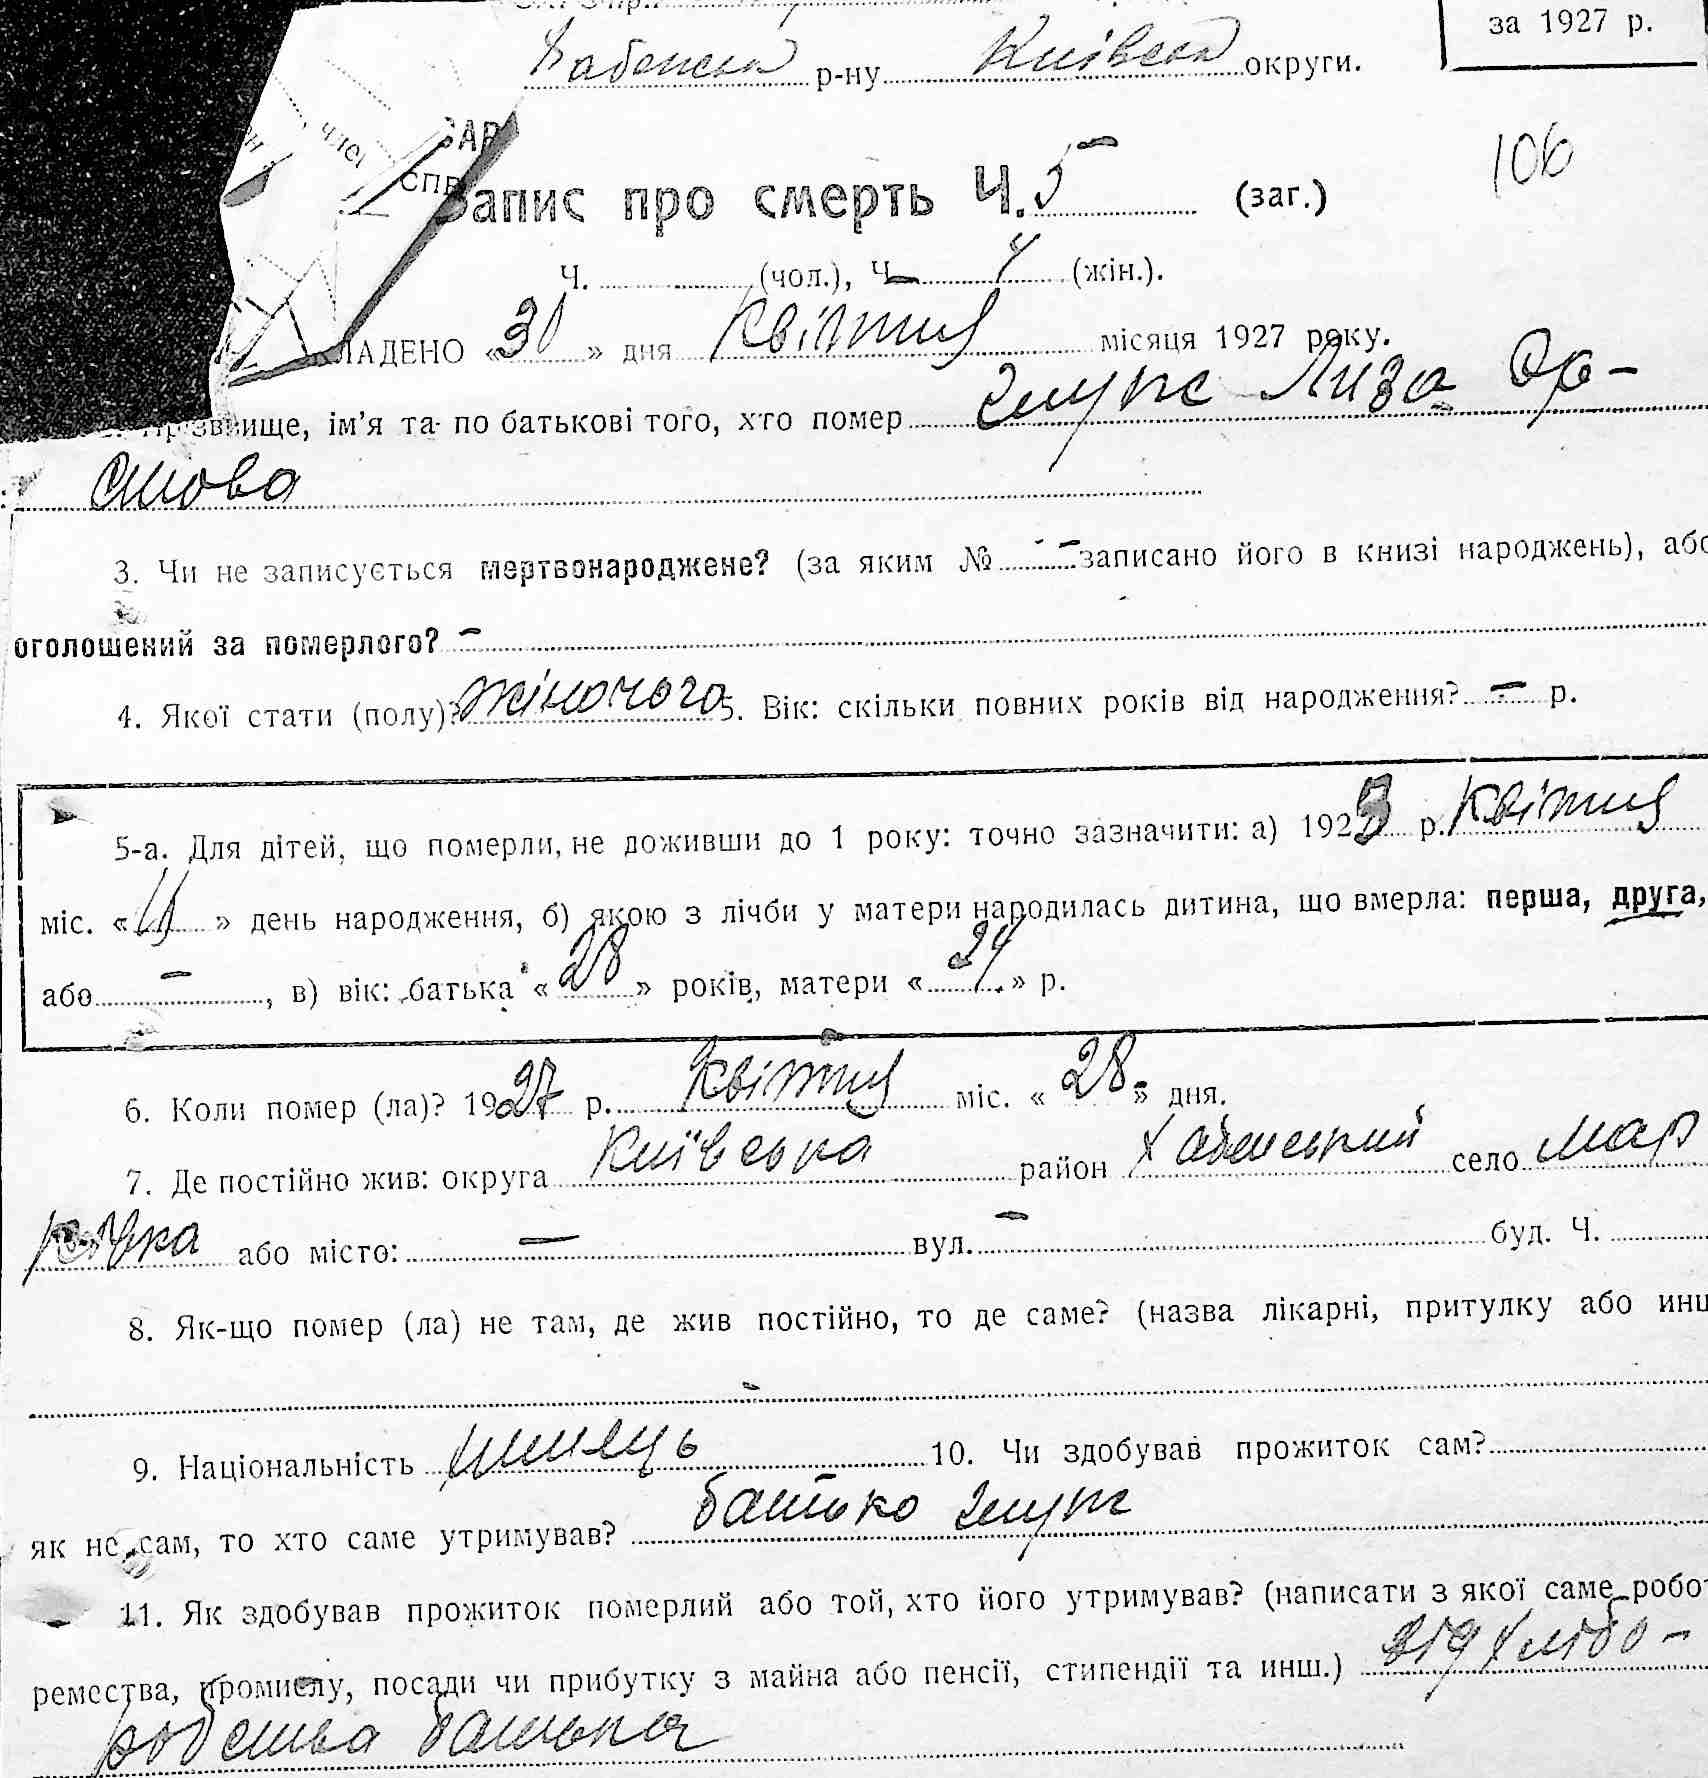 р-ну Київська округи.
за 1927 р.
106
Запис про смерть Ч. 5 (заг.)
Ч. (чол.), Ч. 4 (жін.).
ЛАДЕНО «30» дня Квітня місяця 1927 року.
ім'я та по батькові того, хто помер Лиза
3. Чи не записується мертвонароджене? (за яким № - записано його в книзі народжень), або
оголошений за померлого? -
4. Якої стати (полу)? жіночого 5. Вік: скільки повних років від народження? - р.
5-а. Для дітей, що померли, не доживши до 1 року: точно зазначити: а) 192 р. Квітня
міс. « » день народження, б) якою з лічби у матери народилась дитина, що вмерла: перша, друга,
або -, в) вік: батька «28» років, матери «24» р.
6. Коли помер (ла)? 1927 р. Квітня міс. «28» дня.
7. Де постійно жив: округа Київська район Хабенський село Мар
або місто: - вул. - буд. Ч.
8. Як-що помер (ла) не там, де жив постійно, то де саме? (назва лікарні, притулку або инш
-
9. Національність 10. Чи здобував прожиток сам?
як не сам, то хто саме утримував? батько
11. Як здобував прожиток померлий або той, хто його утримував? (написати з якої саме робо
ремества, промислу, посади чи прибутку з майна або пенсії, стипендії та инш.) від хлібо-
робства батька